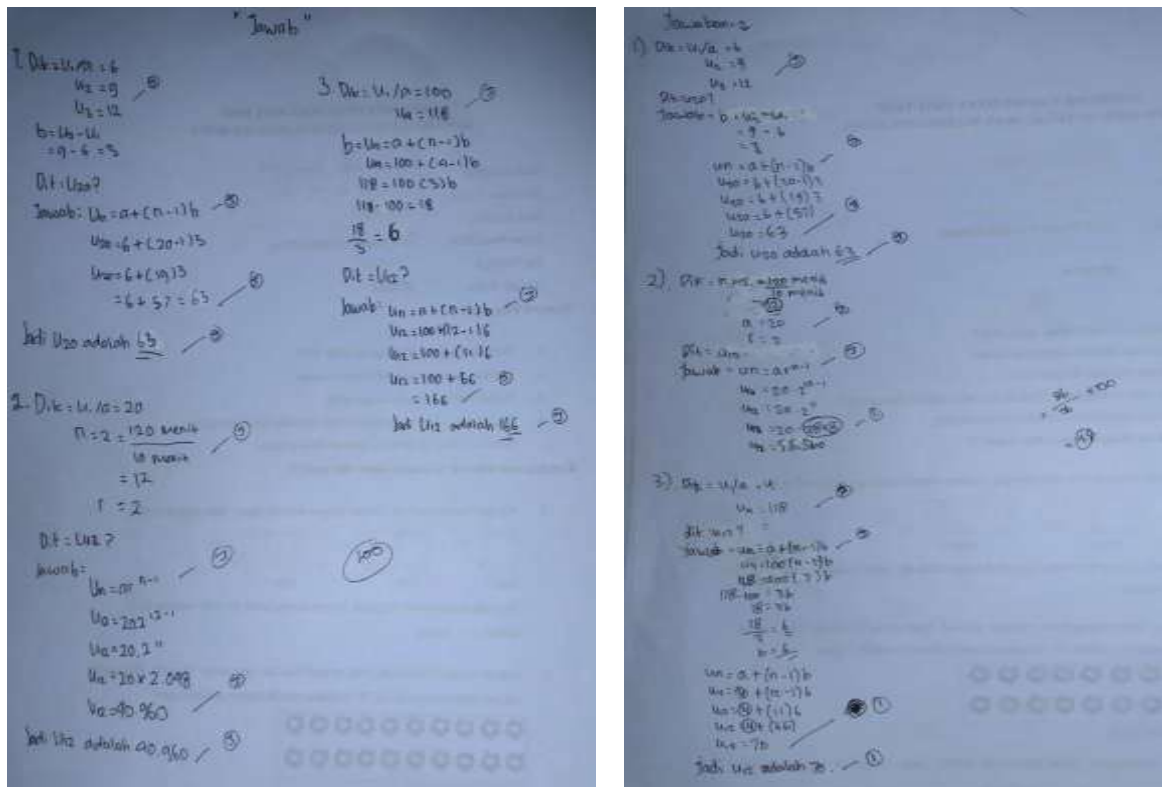 "Jawab"
1. Dik = U1/a = 6
U2 = 9
U3 = 12
b = U2 - U1
= 9 - 6 = 3
Dit : U20?
Jawab : Un = a + (n-1)b
U20 = 6 + (20-1)3
U20 = 6 + (19)3
= 6 + 57 = 63
Jadi U20 adalah 63
2. Dik = U1/a = 20
n = 2 = 120 menit
10 menit
= 12
r = 2
Dit = U12?
Jawab =
Un = ar n-1
U12 = 20.2 12-1
U12 = 20.2 11
U12 = 20 x 2.048
U12 = 40.960
Jadi U12 adalah 40.960
3. Dik = U1/a = 100
U4 = 118
b = Un = a + (n-1)b
Un = 100 + (4-1)b
118 = 100 (3)b
118 - 100 = 18
18
3
= 6
Dit = U12?
Jawab : Un = a + (n-1)b
U12 = 100 + (12-1)6
U12 = 100 + (11)6
U12 = 100 + 66
= 166
Jadi U12 adalah 166
100
Jawaban =
1) Dik = U1/a = 6
U2 = 9
U3 = 12
Dit = U20?
Jawab = b = U2 - U1
= 9 - 6
= 3
Un = a + (n-1)b
U20 = 6 + (20-1)3
U20 = 6 + (19)3
U20 = 6 + (57)
U20 = 63
Jadi U20 adalah 63
2) Dik =
10 menit
a = 20
r = 2
Dit = U12
Jawab = Un = ar n-1
U12 = 20.2
U12 = 20.2 11
U12 = 20
3) Dik = U1/a =
U4 = 118
dit = U12?
Jawab = Un = a + (n-1)b
118 = 100 (3)b
118 - 100 = 3b
18 = 3b
18
3
= 6
b = 6
Un = a + (n-1)b
U12 = 70
Jadi U12 adalah 70.